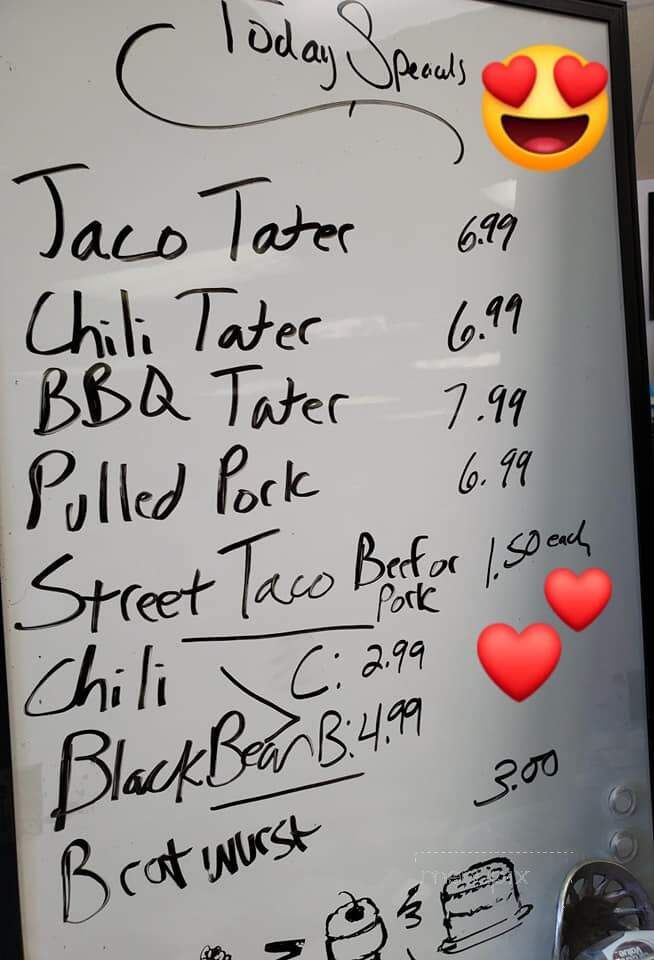 Today Specials
Taco Tater 6.99
Chili Tater 6.99
BBQ Tater 7.99
Pulled Pork 6.99
Street Taco Beef or Pork 1.50 each
Chili C: 2.99
Black Bean B: 4.99
Bratwurst 3.00
menupix
Value